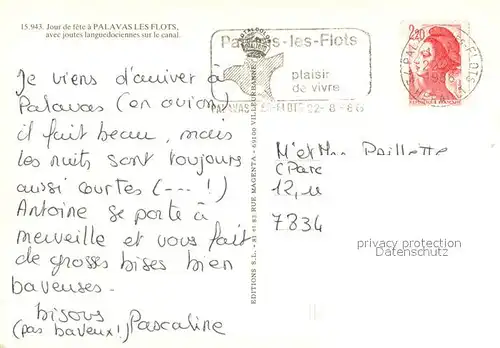 15.943. Jour de fête à PALAVAS LES FLOTS,
avec joutes languedociennes sur le canal.
Je viens d'arriver à
Palavas (en avion)
il fait beau, mais
les nuits sont toujours
aussi courtes (---!)
Antoine se porte à
merveille et vous fait
de grosses bises bien
baveuses.
bisous
(pas baveux!) Pascaline
EDITIONS S.L. - 81 et 83 RUE MAGENTA - 69100 VILLEURBANNE
Palavas-les-Flots
plaisir
de vivre
2,20
M' et Mme Paillette
12,
7834
privacy protection
Datenschutz